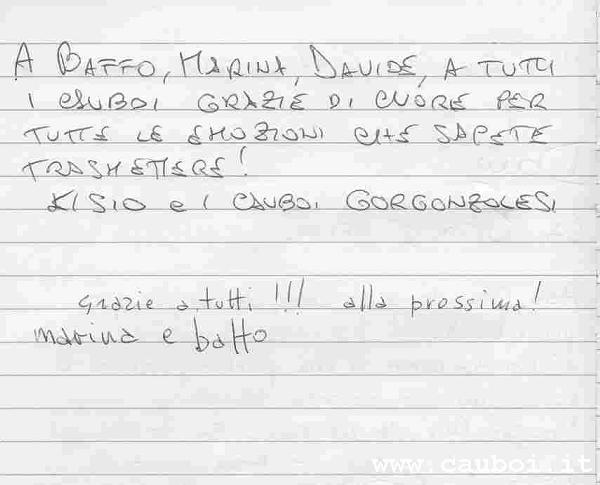 A BAFFO, MARINA, DAVIDE, A TUTTI
I CAUBOI GRAZIE DI CUORE PER
TUTTE LE EMOZIONI CHE SAPETE
TRASMETTERE!
KISIO e I CAUBOI GORGONZOLESI
grazie a tutti!!! alla prossima!
marina e baffo
www.cauboi.it